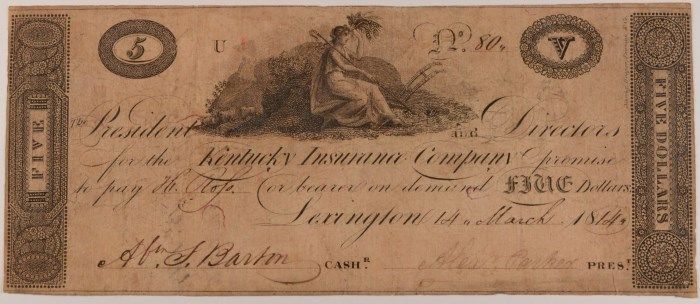 5 U No. 80 V
The President & Directors
for the Kentucky Insurance Company promise
to pay H. Ross or bearer on demand FIVE Dollars
Lexington 14 March 1814
Abm. S. Barton CASHR. Alexr. Parker PREST.
FIVE
FIVE DOLLARS